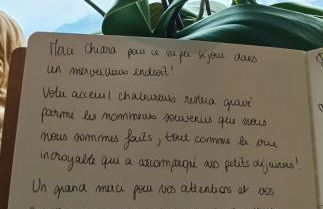 Merci Chiara pour ce super séjour dans
un merveilleux endroit !
Votre accueil chaleureux restera gravé
parmi les nombreux souvenirs que nous
nous sommes faits, tout comme la vue
incroyable qui a accompagné nos petits déjeuners !
Un grand merci pour vos attentions et vos